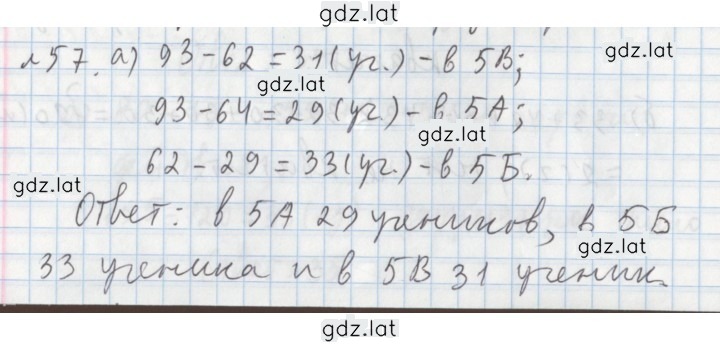 gdz.lat
№57. а) 93-62=31(уч.)-в 5В;
gdz.lat
gdz.lat
93-64=29(уч.)-в 5А;
gdz.lat
62-29=33(уч.)-в 5Б.
gdz.lat
Ответ: в 5А 29 учеников, в 5Б
gdz.lat
33 ученика и в 5В 31 ученик.
gdz.lat